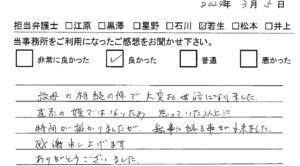 2024年 3月 5日
担当弁護士 □江原 □黒澤 □星野 □石川 ☑若生 □松本 □井上
当事務所をご利用になったご感想をお聞かせ下さい。
□ 非常に良かった ☑ 良かった □ 普通 □ 悪かった
叔母の相続の件で大変お世話になりました。
直系の姪ではないため 思っていた以上に
時間が掛かりましたが、無事に終る事が出来ました。
感謝申し上げます
ありがとうございました。